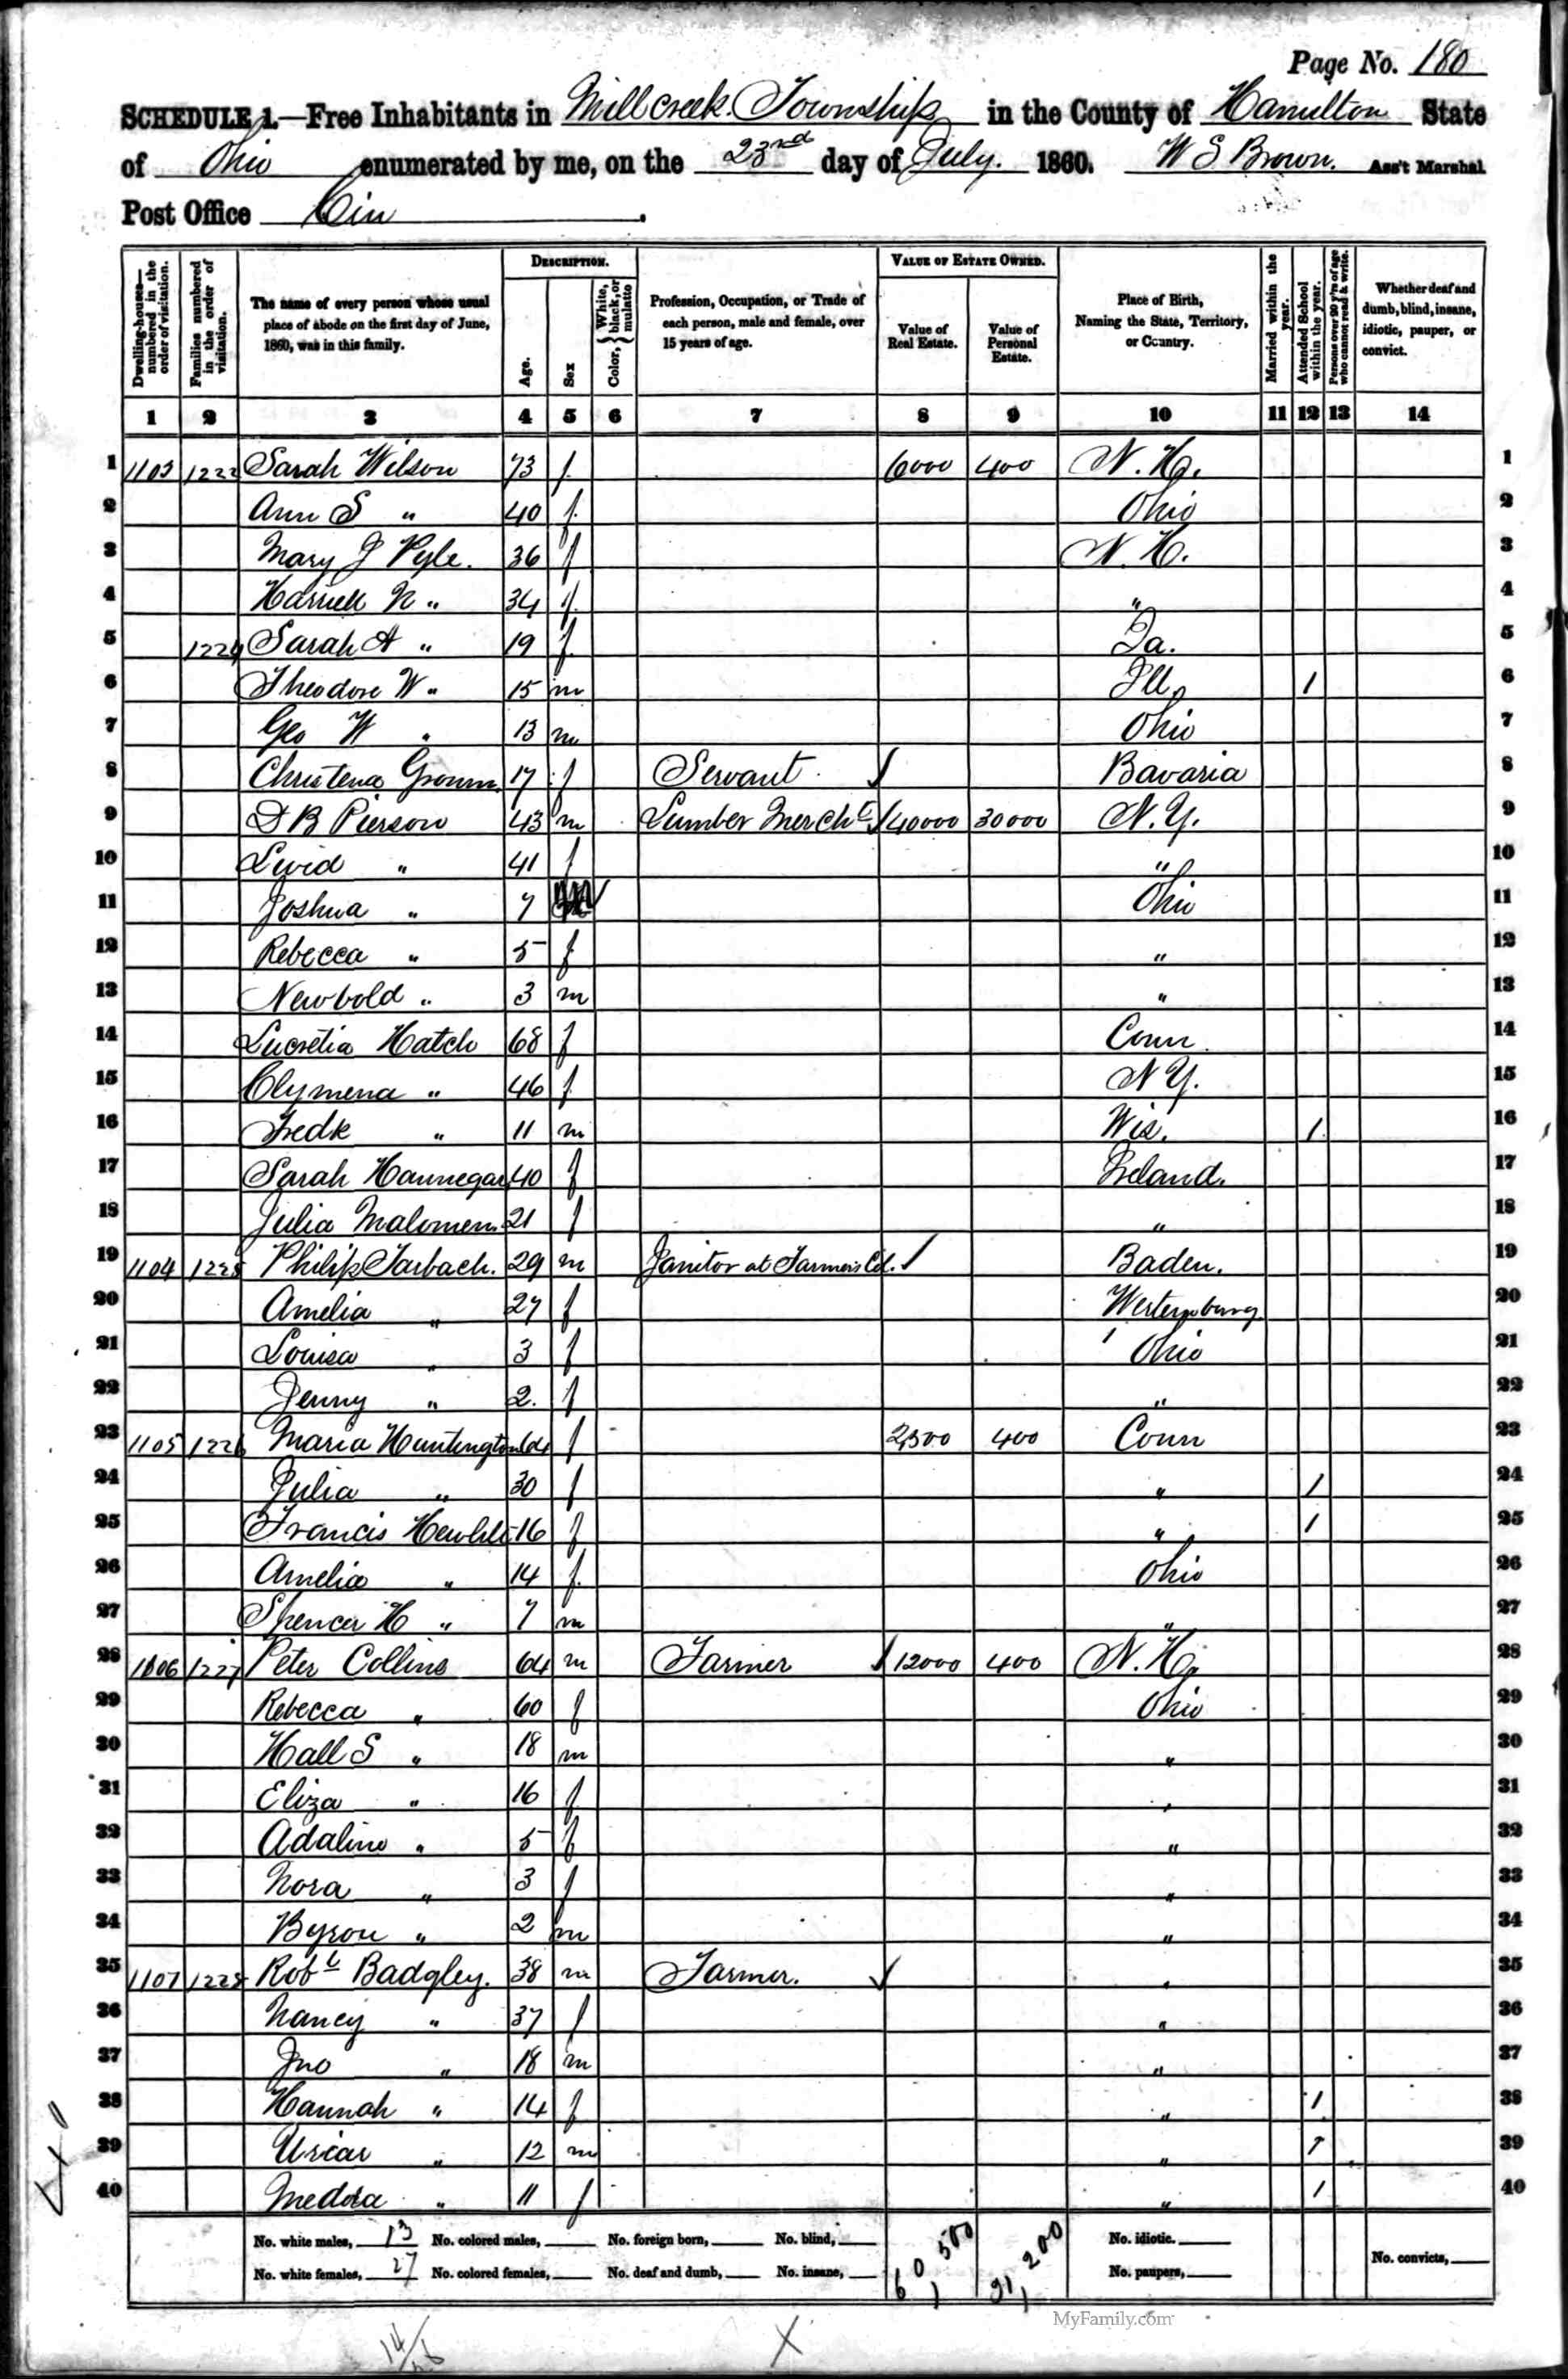 Page No. 180
SCHEDULE 1.—Free Inhabitants in Millcreek Township in the County of Hamilton State
of Ohio enumerated by me, on the 23nd day of July. 1860. W S Brown. Ass't Marshal
Post Office Cin.
Dwelling-houses—numbered in the order of visitation.
Families numbered in the order of visitation.
The name of every person whose usual place of abode on the first day of June, 1860, was in this family.
DESCRIPTION.
Age.
Sex
Color, { White, black, or mulatto
Profession, Occupation, or Trade of each person, male and female, over 15 years of age.
VALUE OF ESTATE OWNED.
Value of Real Estate.
Value of Personal Estate.
Place of Birth, Naming the State, Territory, or Country.
Married within the year.
Attended School within the year.
Persons over 20 y'rs of age who cannot read & write.
Whether deaf and dumb, blind, insane, idiotic, pauper, or convict.
1 2 3 4 5 6 7 8 9 10 11 12 13 14
1 1103 1223 Sarah Wilson 73 f 6000 400 N. H. 1
2 Ann S " 40 f Ohio 2
3 Mary J Pyle. 36 f N. H. 3
4 N " 34 f " 4
5 1224 Sarah A " 19 f 5
6 Theodore W " 15 m Ill 1 6
7 Geo W " 13 m Ohio 7
8 Christena 17 f Servant Bavaria 8
9 D B Pierson 43 m Lumber Mercht 40000 30000 N. Y. 9
10 " 41 f " 10
11 Joshua " 7 Ohio 11
12 Rebecca " 5 f " 12
13 Newbold " 3 m " 13
14 Lucretia Hatch 68 f Conn 14
15 Clymena " 46 f N Y. 15
16 Fredk " 11 m Wis. 1 16
17 Sarah Hannegan 40 f Ireland. 17
18 Julia 21 f " 18
19 1104 1225 Philip Tarbach. 29 m Janitor at Farmers Col. Baden. 19
20 Amelia " 27 f 20
21 Louisa " 3 f Ohio 21
22 Jenny " 2. f " 22
23 1105 1226 Maria Huntington 64 f 2,500 400 Conn 23
24 Julia " 30 f " 1 24
25 Francis 16 f " 1 25
26 Amelia " 14 f Ohio 26
27 Spencer H " 7 m " 27
28 1106 1227 Peter Collins 64 m Farmer 12000 400 N. H. 28
29 Rebecca " 60 f Ohio 29
30 Hall S " 18 m " 30
31 Eliza " 16 f " 31
32 Adaline " 5 f " 32
33 Nora " 3 f " 33
34 Byron " 2 m " 34
35 1107 1228 Robt Badgley. 38 m Farmer. " 35
36 Nancy " 37 f " 36
37 Jno " 18 m " 37
38 Hannah " 14 f " 1 38
39 Urias " 12 m " 1 39
40 Medora " 11 f " 1 40
No. white males, 13 No. colored males, No. foreign born, No. blind, 60,500 31,200 No. idiotic.
No. white females, 27 No. colored females, No. deaf and dumb, No. insane, No. paupers, No. convicts,
MyFamily.com